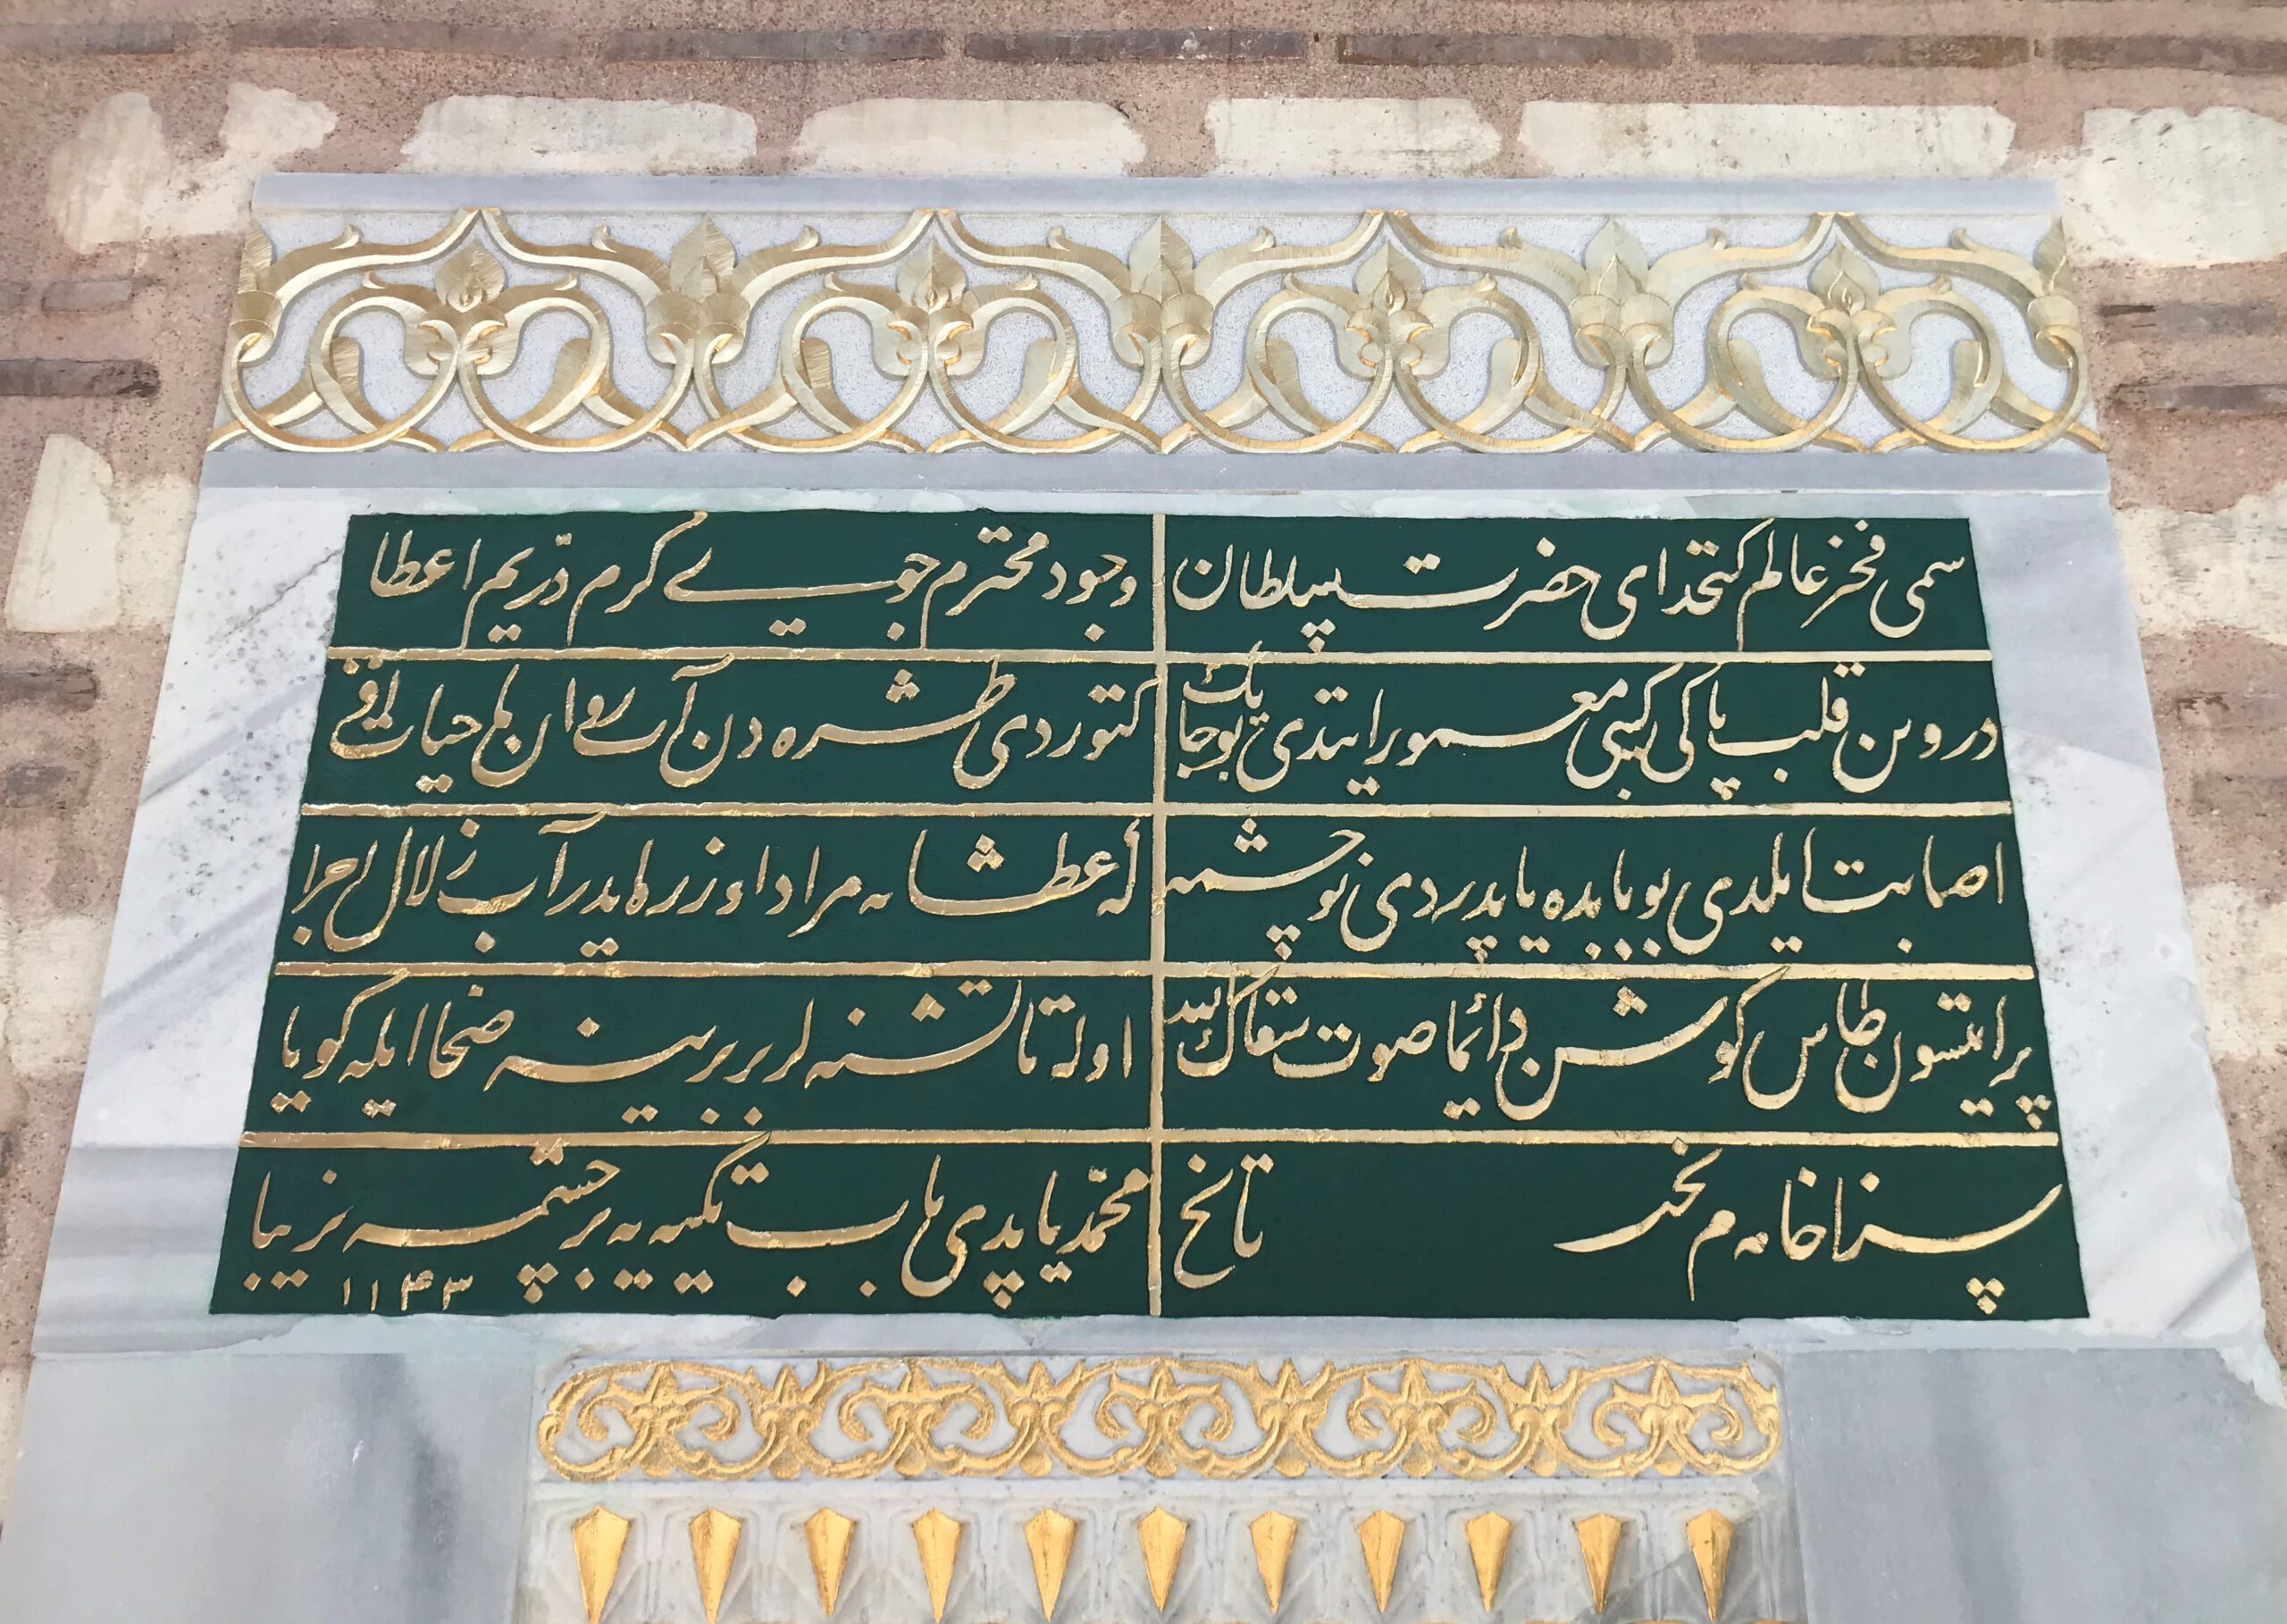 سمی فخر عالم کتخدای حضرت سلطان
وجود محترم جوی کرم در یم اعطا
درون قلب پاکی کبی معمور ایتدی بو جایك
کتوردی طشره دن آب روان
اصابت ایلدی بو باده یا پدردی نو چشمه
عطشانه مراد اوزره ایدر آب زلال اجرا
پر ایتسون طاس گوشن دائما صوت سقاك
اوله تا تشنه لر بر برینه ضحا ایله گویا
سزا خامه م تاریخ
محمد یاپدی باب تکیه یه بر چشمه زیبا
۱۱۴۳